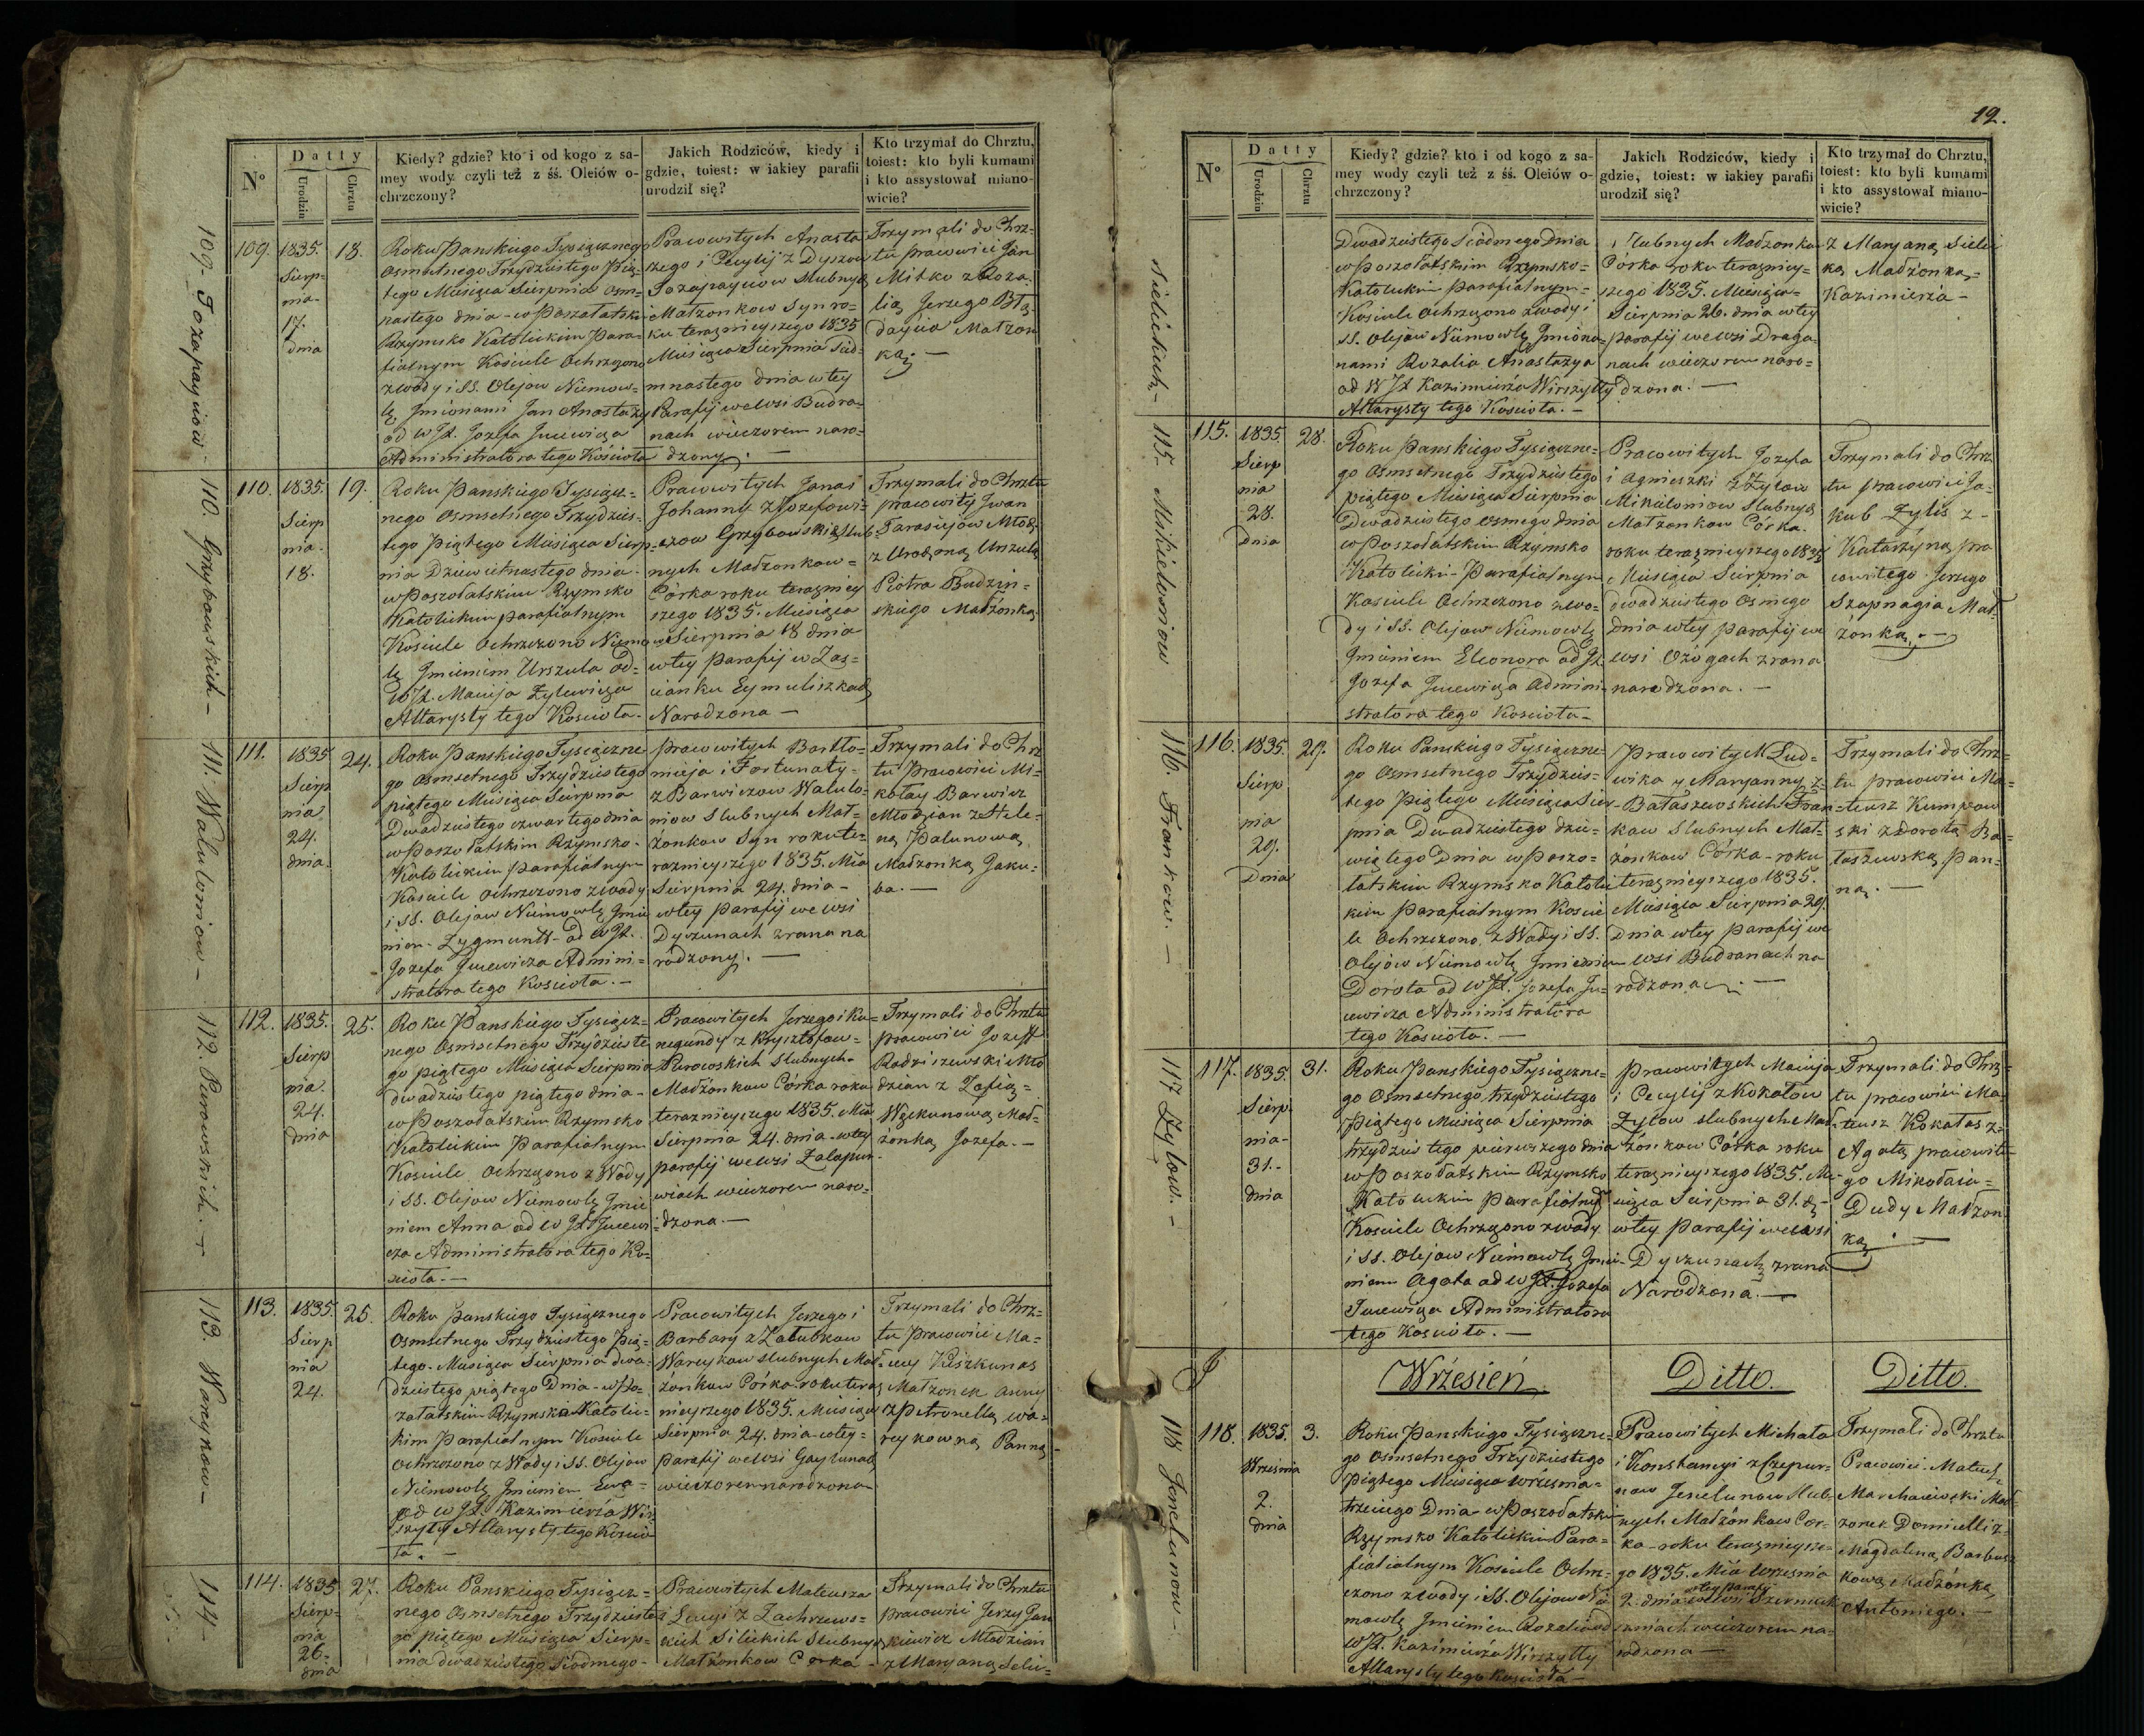 Nº
Datty
Urodzin
Chrztu
Kiedy? gdzie? kto i od kogo z sa-
mey wody czyli też z śś. Oleiów o-
chrzczony?
Jakich Rodziców, kiedy i
gdzie, toiest: w iakiey parafii
urodził się?
Kto trzymał do Chrztu,
toiest: kto byli kumami
i kto assystował miano-
wicie?
109. 1835. Sierp=
nia
17.
dnia
18.
Roku Pańskiego Tysiącznego
Osmsetnego Trzydziestego Pią-
tego Miesiąca Sierpnia osm-
nastego dnia - w Poszołatskim
Rzymsko Katolickim Para-
fialnym Kościele Ochrzczono
z wody i SS. Olejow Niemow-
lę Jmionami Jan Anastazy
od WJX. Jozefa
Administratora tego Kościoła
Pracowitych Anasta
szego i Cecylij z Dyszow
Slubnych
Małżonkow Syn ro-
ku teraznieyszego 1835
Miesiąca Sierpnia Siód-
mnastego dnia w tey
Parafij we wsi Budra-
nach wieczorem naro-
dzony. —
Trzymali do Chrz-
tu pracowici Jan
Mitko z Roza-
lią Jerzego
Małżon
ką —
110. 1835. Sierp
nia
18.
19.
Roku Pańskiego Tysiącz=
nego Osmsetnego Trzydzies-
tego Piątego Miesiąca Sierp-
nia Dziewietnastego dnia
w Poszołatskim Rzymsko
Katolickim parafialnym
Kościele Ochrzczono Niemow
lę Jmieniem Urszula Od=
WJX. Macieja Zylewicza
Altarysty tego Kościoła.
Pracowitych Jana i
Johanny z Jozefowi-
czow Grzybowskich Slub-
nych Małżonkow=
Córka roku terazniey
szego 1835. Miesiąca
Sierpnia 18 dnia
w tey Parafij w Zaś=
cianku Eymuliszkach
Narodzona —
Trzymali do Chrztu
pracowity Jwan
Tarasiejów Młodz.
z Urodzoną Urszulą
Piotra Budzin=
skiego Małżonką
111. 1835
Sierp
nia
24.
dnia
24.
Roku Pańskiego Tysiączne
go Osmsetnego Trzydziestego
piątego Miesiąca Sierpnia
Dwadziestego czwartego dnia
w Poszołatskim Rzymsko-
Katolickim Parafialnym
Kościele Ochrzczono z wody
i SS. Olejow Niemowlę Jmie
niem Zygmuntt od WJX.
Jozefa Admini=
stratora tego Kościoła. —
Pracowitych Bartło=
mieja i Fortunaty
z Barwiczow Walulo=
niow Slubnych Mał=
żonkow Syn roku te-
raznieyszego 1835. Mca
Sierpnia 24. dnia -
w tey parafij we wsi
Dyczunach z rana na
rodzony. —
Trzymali do Chrz
tu Pracowici Mi-
kołay Barwicz
Młodzian z Hele-
ną Palunową
Małżonką Jaku-
ba. —
112. 1835.
Sierp
nia
24.
dnia
25.
Roku Pańskiego Tysiącz=
nego Osmsetnego Trzydzieste
go piątego Miesiąca Sierpnia
dwadziestego piątego dnia -
w Poszołatskim Rzymsko
Katolickim Parafialnym
Kościele Ochrzczono z Wody
i SS. Olejow Niemowlę Jmie
niem Anna od WJX
Administratora tego Ko=
scioła. —
Pracowitych Jerzego i Ku=
negundy z Krysztofow=
Purowskich Slubnych
Małżonkow Córka roku
teraznieyszego 1835. Mca
Sierpnia 24. dnia w tey
parafij we wsi Zalapur
wiach wieczorem naro=
dzona. —
Trzymali do Chrztu
pracowici Jozeff
Radziszewski Mło
dzian z Zofią=
Węckunową Mał=
żonką Jozefa. —
113. 1835.
Sierp
nia
24.
25.
Roku Pańskiego Tysiącznego
Osmsetnego Trzydziestego pią=
tego Miesiąca Sierpnia dwa-
dziestego piątego Dnia - w Po-
szałatskim Rzymsko Katolic-
kim Parafialnym Kościele
Ochrzczono z Wody i SS. Olejow
Niemowlę Jmieniem Ewa=
od WJX. Kazimierza Wir
szyłły Altarysty tego Koscio
ła. —
Pracowitych Jerzego i
Barbary z Załubkow
Wareykow slubnych Mał
żonkow Córka roku teraz
nieyszego 1835. Miesiąca
Sierpnia 24. dnia w tey=
parafij we wsi Gaylunach
wieczorem narodzona
Trzymali do Chrz=
tu pracowici Ma=
Puszkunas
Małżonek Anny
z Petronellą Wa=
reykowną Panną
114. 1835
Sierp=
nia
26.
dnia
27.
Roku Pańskiego Tysiącz=
nego Osmsetnego Trzydzieste
go piątego Miesiąca Sierp=
nia dwadziestego siódmego -
Pracowitych Mateusza
i Łucyi z Zachrzews=
kich Silickich Slubnych
Małżonkow Córka -
Trzymali do Chrztu
pracowici Jerzy Jan
kiewicz Młodzian
z Maryaną Sielic=
109.
110. Grzybowskich —
111. Waluloniow —
112. Purowskich. —
113. Wareykow —
114 —
12.
Nº
Datty
Urodzin
Chrztu
Kiedy? gdzie? kto i od kogo z sa-
mey wody czyli też z śś. Oleiów o-
chrzczony?
Jakich Rodziców, kiedy i
gdzie, toiest: w iakiey parafii
urodził się?
Kto trzymał do Chrztu,
toiest: kto byli kumami
i kto assystował miano-
wicie?
Sielickich —
Dwadziestego siódmego dnia
w Poszołatskim Rzymsko=
Katolickim Parafialnym=
Kościele Ochrzczono z wody i
SS. Olejow Niemowlę Jmiona=
nami Rozalia Anastazya
od WJX Kazimierza Wirszyłły
Altarysty tego Kościoła. —
Slubnych Małżonkow
Córka roku teraźniey=
szego 1835. Miesiąca=
Sierpnia 26. dnia w tey
parafij we wsi Draga-
nach wieczorem naro=
dzona. —
z Maryaną Sielic
ką Małżonką=
Kazimierza —
115. Mikieloniow
115. 1835.
Sierp
nia
28.
Dnia
28.
Roku Pańskiego Tysiączne=
go Osmsetnego Trzydziestego
piątego Miesiąca Sierpnia
Dwadziestego osmego dnia
w Poszołatskim Rzymsko
Katolicki - Parafialnym
Kościele Ochrzczono z wo=
dy i SS. Olejow Niemowlę
Jmieniem Eleonora od JX.
Jozefa Admini
stratora tego Kościoła —
Pracowitych Jozefa
i Agnieszki z Żyłow
Mikieloniow Slubnych
Małżonkow Córka.
roku teraznieyszego 1835
Miesiąca Sierpnia
dwadziestego Osmego
dnia w tey parafij we
wsi Ożógach z rana
narodzona. —
Trzymali do Chrz
tu pracowici Ja-
kub Zylis z -
Katarzyną pra
cowitego Jerzego
Szapnagia Mał-
żonką. —
116. Frankow. —
116. 1835.
Sierp
nia
29.
Dnia
29.
Roku Pańskiego Tysiączne=
go Osmsetnego Trzydzies-
tego Piątego Miesiąca Sier-
pnia Dwadziestego dzie-
wiątego Dnia w Poszo=
łatskim Rzymsko Katolic
kim Parafialnym Koscie
le Ochrzczono z Wody i SS.
Olejów Niemowlę Jmieniem
Dorota od WJX. Jozefa
Administratora
tego Kościoła. —
Pracowitych Lud=
wika y Maryanny z=
Bałaszewskich Fran
kow Slubnych Mał=
żonkow Córka - roku
teraznieyszego 1835.
Miesiąca Sierpnia 29.
Dnia w tey Parafij we
wsi Budranach na
rodzona. —
Trzymali do Chrz-
tu pracowici Ma=
teusz Kumpow
ski z Dorotą Ba=
łaszewską Pan=
ną. —
117 Zyłow. —
117. 1835.
Sierp
nia -
31. -
dnia
31.
Roku Pańskiego Tysiączne=
go Osmsetnego trzydziestego
Piątego Miesiąca Sierpnia
trzydziestego pierwszego dnia
w Poszołatskim Rzymsko
Katolickim Parafialnym
Kościele Ochrzczono z wody
i SS. Olejow Niemowlę Jmie-
niem Agata od WJX. Jozefa
Administratora
tego Kościoła. —
Pracowitych Macieja
i Cecylij z Kokatow
Zyłow slubnych Mał
żonkow Córka roku
teraznieyszego 1835. Mie
siąca Sierpnia 31. d. -
w tey Parafij we wsi
Dyczunach z rana
Narodzona. —
Trzymali do Chrz-
tu pracowici Ma
teusz Kokatas z=
Agatą pracowite-
go Mikołaia=
Dudy Małżon
ką. —
Wrżesień.
Ditto.
Ditto.
118
118. 1835.
Wrzesnia
2.
dnia
3.
Roku Pańskiego Tysiączne=
go Osmsetnego Trzydziestego
Piątego Miesiąca Wrzesnia=
trzeciego Dnia - w Poszołatskim
Rzymsko Katolickim Para=
fialnym Kościele Ochrz=
czono z wody i SS. Olejow Nie
mowlę Jmieniem Rozalia od
WJX. Kazimierza Wirszyłły
Altarysty tego Kościoła —
Pracowitych Michała
i Konstancyi z Czepur-
now Jenelunow slub-
nych Małżónkow Cór-
ka - roku teraznieysze-
go 1835. Mca Wrzesnia
2. dnia w tey Parafij we wsi
wieczorem na-
rodzona —
Trzymali do Chrztu
Pracowici Mateusz
Małż
żonek Domicelli z-
Magdaleną
kową Małżónką
Antoniego. —